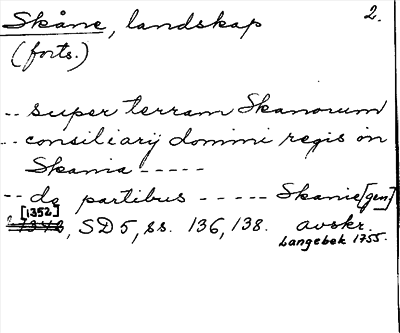 Skåne, landskap 2.
(forts.)
-- super terram Skanorum
-- consiliarij domini regis in
Skania -----
-- de partibus ----- Skanie [gen]
[1352]
1348, SD5, ss. 136, 138. avskr.
Langebek 1755.